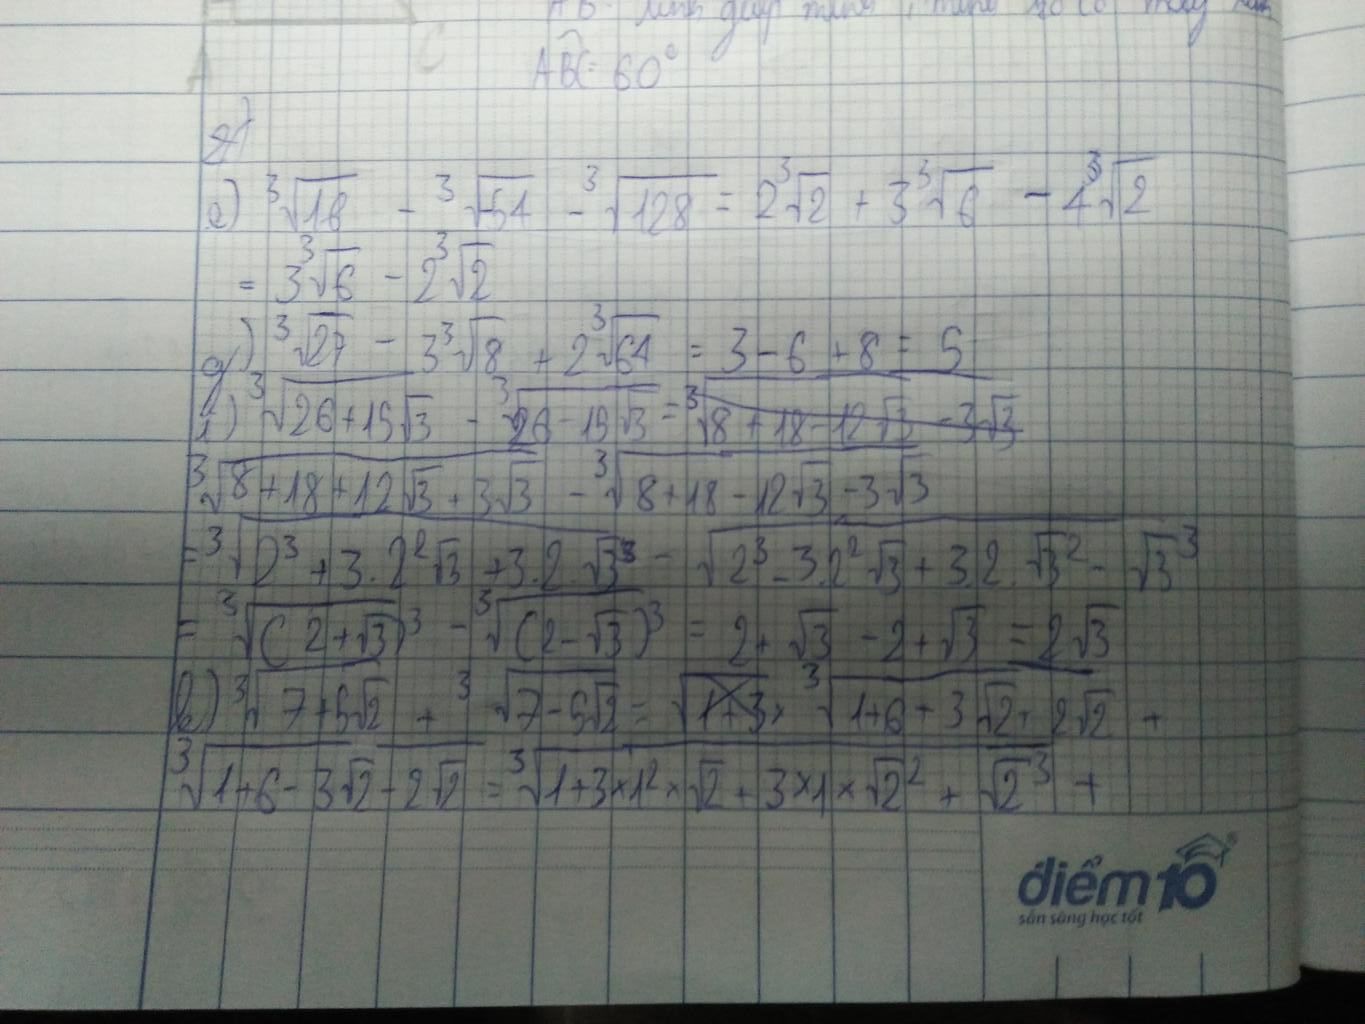 ABC = 60°
e) ∛16 - ∛-54 - ∛128 = 2∛2 + 3∛6 - 4∛2
= 3∛6 - 2∛2
g) ∛27 - 3∛8 + 2∛64 = 3 - 6 + 8 = 5
i) ∛(26+15√3) - ∛(26-15√3) = ∛(8+18-12√3-3√3)
∛(8+18+12√3+3√3) - ∛(8+18-12√3-3√3)
= ∛(2³+3.2²√3+3.2.√3³) - √(2³-3.2²√3+3.2.√3²-√3³)
= ∛(2+√3)³ - ∛(2-√3)³ = 2+√3 - 2+√3 = 2√3
k) ∛(7+5√2) + ∛(7-5√2) = √(1+3× ∛(1+6+3√2+2√2) +
∛(1+6-3√2-2√2) = ∛(1+3×1²×√2+3×1×√2²+√2³) +
điểm10
sẵn sàng học tốt